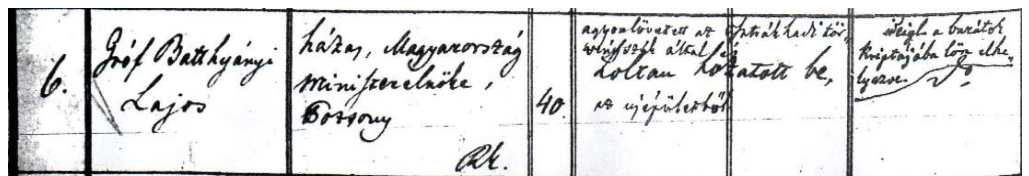 6.
Gróf Batthyányi
Lajos
házas, Magyarország
Miniszterelnöke,
Pozsony
Rk.
40.
agyonlövetett az osztrák hadi tör,
vényszék által és
holtan hozatott be,
az ujépületből
a barátok
kriptájába lőn elhe,
lyezve.